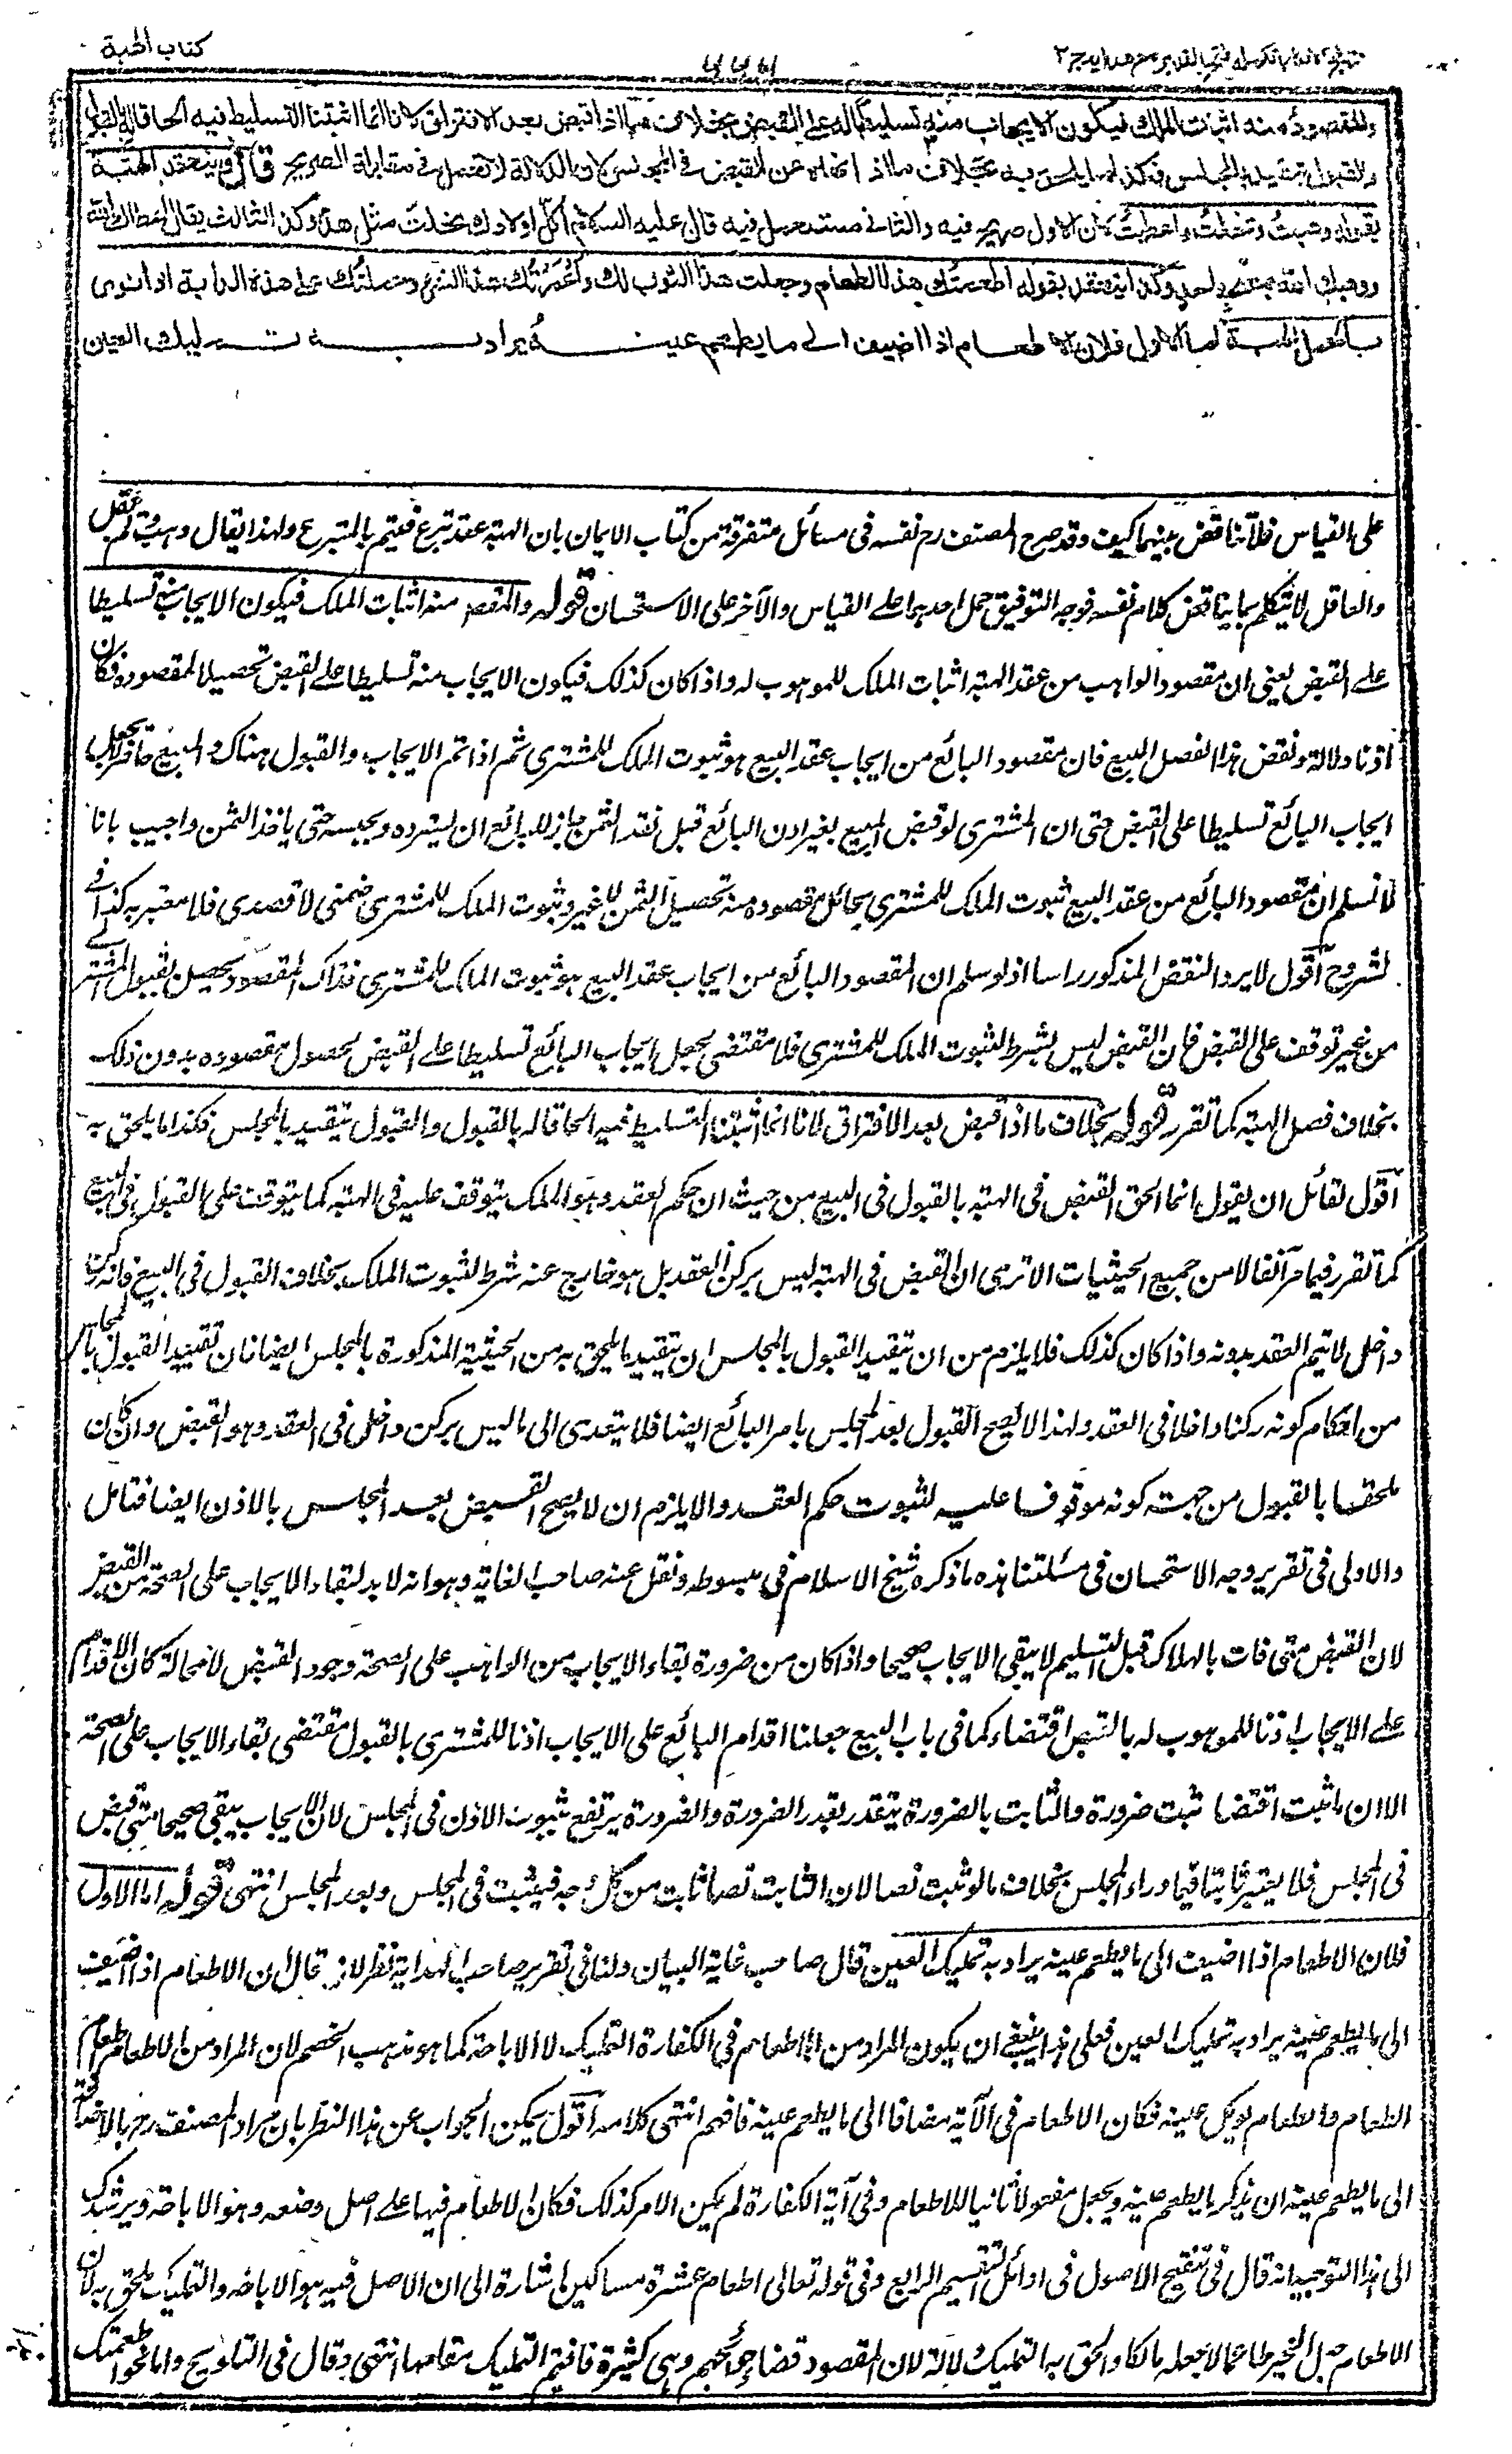 كتاب الهبة
والمقصود منه اثبات الملك فيكون الايجاب منه تسليطا له على القبض بخلاف ما اذا قبض بعد الافتراق لانا انما اثبتنا التسليط فيه الحاقا له بالقبول
والقبول يتقيد بالمجلس فكذا ما يلحق به بخلاف ما اذا نهاه عن القبض في المجلس لان الدلالة لا تعمل في مقابلة الصريح قال وينعقد الهبة
بقوله وهبت ونحلت واعطيت لان الاول صريح فيه والثاني مستعمل فيه قال عليه السلام أكل اولادك نحلت مثل هذا وكذا الثالث يقال اعطاك الله
ووهبك الله بمعنى واحد وكذا ينعقد بقوله اطعمتك هذا الطعام وجعلت هذا الثوب لك واعمرتك هذا الشيء وحملتك على هذه الدابة اذا نوى
بالحمل الهبة اما الاول فلان الاطعام اذا اضيف الى ما يطعم عينه يراد به تمليك العين
على القياس فلا تناقض بينهما كيف وقد صرح المصنف رح نفسه فى مسائل متفرقة من كتاب الايمان بان الهبة عقد تبرع فيتم بالمتبرع ولهذا يقال وهبت ولم يقبل
والعاقل لا يتكلم بما يناقض كلام نفسه فوجه التوفيق حمل احدهما على القياس والآخر على الاستحسان قوله والمقصود منه اثبات الملك فيكون الايجاب منه تسليطا
على القبض يعنى ان مقصود الواهب من عقد الهبة اثبات الملك للموهوب له واذا كان كذلك فيكون الايجاب منه تسليطا على القبض تحصيلا لمقصوده فكان
اذنا دلالة ونقض هذا بفصل البيع فان مقصود البائع من ايجاب عقد البيع هو ثبوت الملك للمشترى ثم اذا تم الايجاب والقبول هناك والمبيع حاضر لا يجعل
ايجاب البائع تسليطا على القبض حتى ان المشترى لو قبض المبيع بغير اذن البائع قبل نقد الثمن جاز للبائع ان يسترده ويحبسه حتى ياخذ الثمن واجيب بانا
لا نسلم ان مقصود البائع من عقد البيع ثبوت الملك للمشترى بل مقصوده منه تحصيل الثمن لا غير وثبوت الملك للمشترى ضمنى لا قصدى فلا معتبر به كذا فى
الشروح اقول لا يرد النقض المذكور راسا اذ لو سلم ان المقصود البائع من ايجاب عقد البيع هو ثبوت الملك للمشترى فذاك المقصود يحصل بقبول المشترى
من غير توقف على القبض فان القبض ليس بشرط لثبوت الملك للمشترى فلا مقتضى لجعل ايجاب البائع تسليطا على القبض لحصول مقصوده بدون ذلك
بخلاف فصل الهبة كما تقرر قوله بخلاف ما اذا قبض بعد الافتراق لانا انما اثبتنا التسليط فيه الحاقا له بالقبول والقبول يتقيد بالمجلس فكذا ما يلحق به
اقول لقائل ان يقول انما الحق القبض فى الهبة بالقبول فى البيع من حيث ان حكم العقد وهو الملك يتوقف عليه فى الهبة كما يتوقف على القبول فى البيع
كما تقرر فيما مر آنفا لا من جميع الحيثيات الا ترى ان القبض فى الهبة ليس بركن العقد بل هو خارج عنه شرط لثبوت الملك بخلاف القبول فى البيع فانه ركن
داخل لا يتم العقد بدونه واذا كان كذلك فلا يلزم من ان تقيد القبول بالمجلس ان يتقيد ما يلحق به من الحيثية المذكورة بالمجلس ايضا فان تقييد القبول بالمجلس
من احكام كونه ركنا داخلا فى العقد ولهذا لا يصح القبول بعد المجلس بامر البائع ايضا فلا يتعدى الى ما ليس بركن داخل فى العقد وهو القبض وان كان
ملحقا بالقبول من جهة كونه موقوفا عليه لثبوت حكم العقد والا يلزم ان لا يصح القبض بعد المجلس بالاذن ايضا فتامل
والاولى فى تقرير وجه الاستحسان فى مسئلتنا هذه ما ذكره شيخ الاسلام فى مبسوطه ونقل عنه صاحب الغاية وهو انه لا بد لبقاء الايجاب على الصحة من القبض
لان القبض متى فات بالهلاك قبل التسليم لا يبقى الايجاب صحيحا واذا كان من ضرورة بقاء الايجاب من الواهب على الصحة وجود القبض لا محالة كان الاقدام
على الايجاب اذنا للموهوب له بالقبض اقتضاء كما فى باب البيع جعلنا اقدام البائع على الايجاب اذنا للمشترى بالقبول مقتضى بقاء الايجاب على الصحة
الا ان ما ثبت اقتضا ثبت ضرورة والثابت بالضرورة يتقدر بقدر الضرورة والضرورة يرتفع بثبوت الاذن فى المجلس لان الايجاب يبقى صحيحا متى قبض
فى المجلس فلا يعتبر ثابتا فيما وراء المجلس بخلاف ما لو ثبت نصا لان الثابت نصا ثابت من كل وجه فيثبت فى المجلس وبعد المجلس انتهى قوله اما الاول
فلان الاطعام اذا اضيف الى ما يطعم عينه يراد به تمليك العين قال صاحب غاية البيان ولنا فى تقرير صاحب الهداية نظر لانه قال ان الاطعام اذا اضيف
الى ما يطعم عينه يراد به تمليك العين فعلى هذا ينبغى ان يكون المراد من الاطعام فى الكفارة التمليك لا الاباحة كما هو مذهب الخصم لان المراد من الاطعام اطعام
الطعام والطعام يوكل عينه فكان الاطعام فى الآية مضافا الى ما يطعم عينه فافهم انتهى كلامه اقول يمكن الجواب عن هذا النظر بان مراد المصنف رح بالاضافة
الى ما يطعم عينه ان يذكر ما يطعم عينه ويجعل مفعولا ثانيا للاطعام وفى آية الكفارة لم يكن الامر كذلك فكان الاطعام فيها على اصل وضعه وهو الاباحة ويرشدك
الى هذا التوجيه انه قال فى تنقيح الاصول فى اوائل التقسيم الرابع وفى قوله تعالى اطعام عشرة مساكين اشارة الى ان الاصل فيه هو الاباحة والتمليك ملحق به لان
الاطعام جعل الغير طاعما لا جعله مالكا والحق به التمليك دلالة لان المقصود قضاء حوائجهم وهى كثيرة فاقيم التمليك مقامها انتهى وقال فى التلويح واما نحو اطعمتك